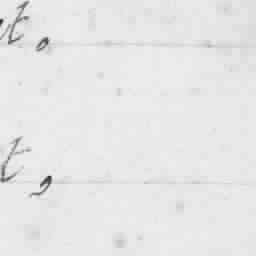 t.
t,